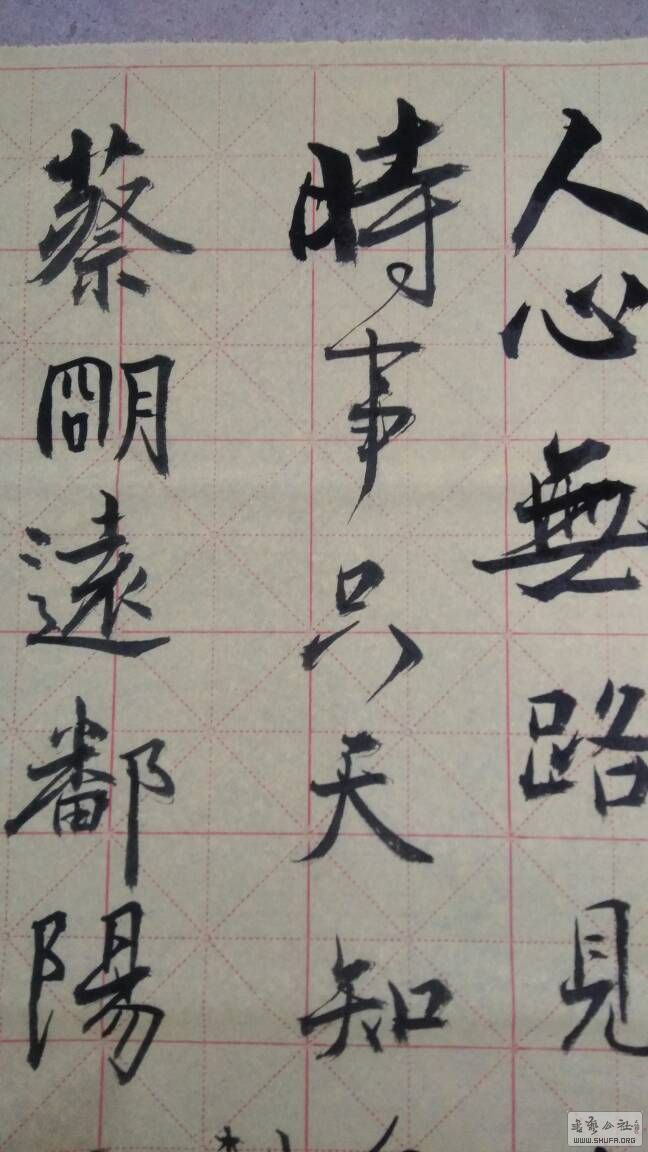 人心無路見
時事只天知
蔡明遠鄱陽
WWW.SHUFA.ORG